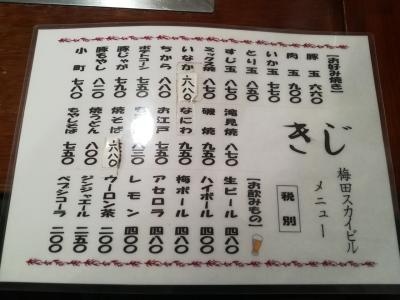 きじ
梅田スカイビル
メニュー
税別
【お好み焼き】
豚玉 六六〇
肉玉 九〇〇
いか玉 七五〇
とり玉 八五〇
すじ玉 八七〇
ミックス焼 九五〇
いなか 六八〇
ちから 八八〇
ポテトコーン
豚じゃが 七九〇
豚もやし 八二〇
小町 七八〇
滝見焼 八七〇
磯焼 九五〇
なにわ 九五〇
お江戸 七五〇
焼そば 六八〇
焼うどん 八〇〇
もやしそば 七五〇
【お飲みもの】
生ビール 四八〇
ハイボール 四〇〇
梅ボール 四八〇
アセロラ 四八〇
レモン 四〇〇
ウーロン茶 二〇〇
ジンジャエール 二五〇
ペプシコーラ 二〇〇